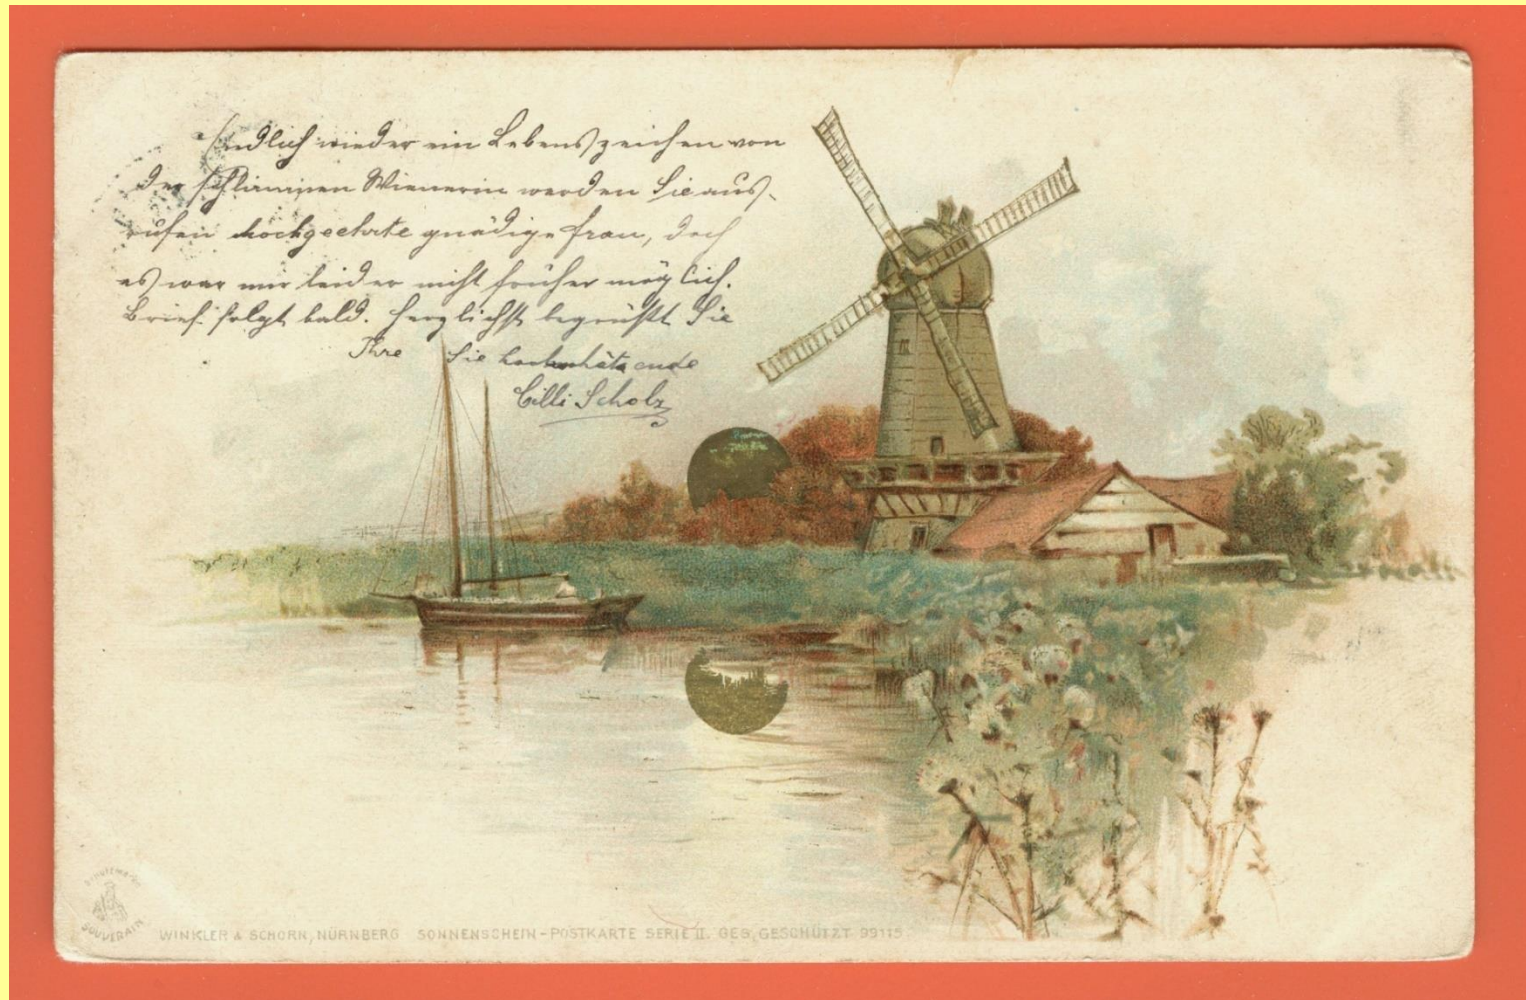 Endlich wieder ein Lebenszeichen von
der schlimmen Wienerin werden Sie aus-
rufen hochgeehrte gnädige Frau, doch
es war mir leider nicht früher möglich.
Brief folgt bald. Herzlichst begrüßt Sie
Ihre Sie hochschätzende
Cilli Scholz
SOUVERAIN
WINKLER & SCHORN, NÜRNBERG SONNENSCHEIN-POSTKARTE SERIE II. GES. GESCHÜTZT 99115